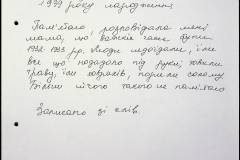 1929 року народження
Пам'ятаю, розповідала мені
мама, що важкі часи були
1932-1933 рр. Люди недоїдали, їли
все що попадало під руки: ховали
траву, їли ховрахів, парили солому
Більш нічого такого не пам'ятаю
Записано зі слів.